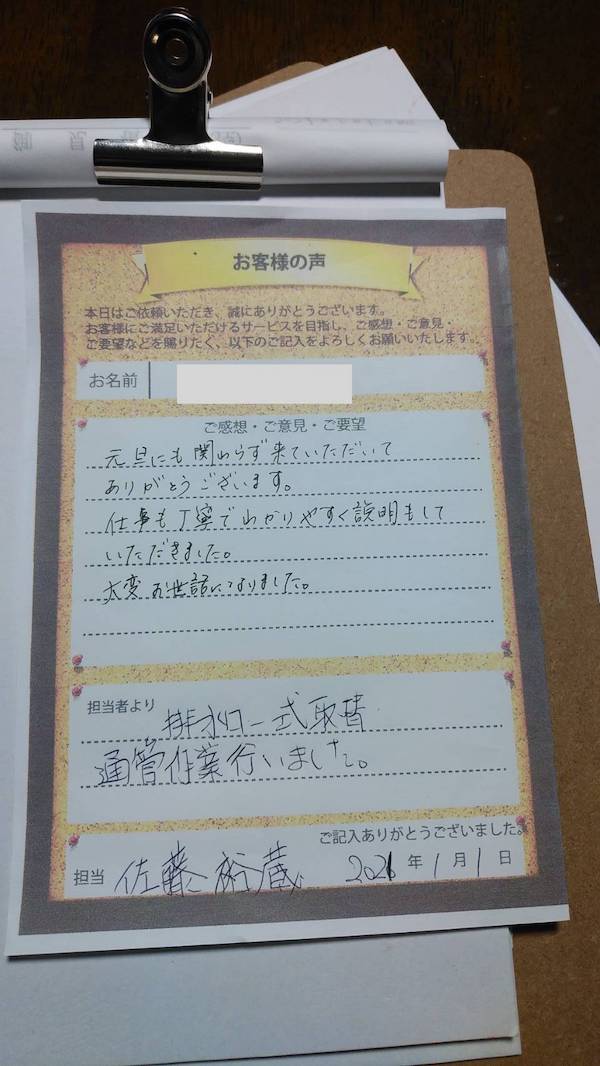 お客様の声
本日はご依頼いただき、誠にありがとうございます。
お客様にご満足いただけるサービスを目指し、ご感想・ご意見・
ご要望などを賜りたく、以下のご記入をよろしくお願いいたします。
お名前
ご感想・ご意見・ご要望
元旦にも関わらず来ていただいて
ありがとうございます。
仕事も丁寧でわかりやすく説明もして
いただきました。
大変お世話になりました。
担当者より
排水口一式取替
通管作業行いました。
ご記入ありがとうございました。
担当 佐藤裕蔵 2021年1月1日